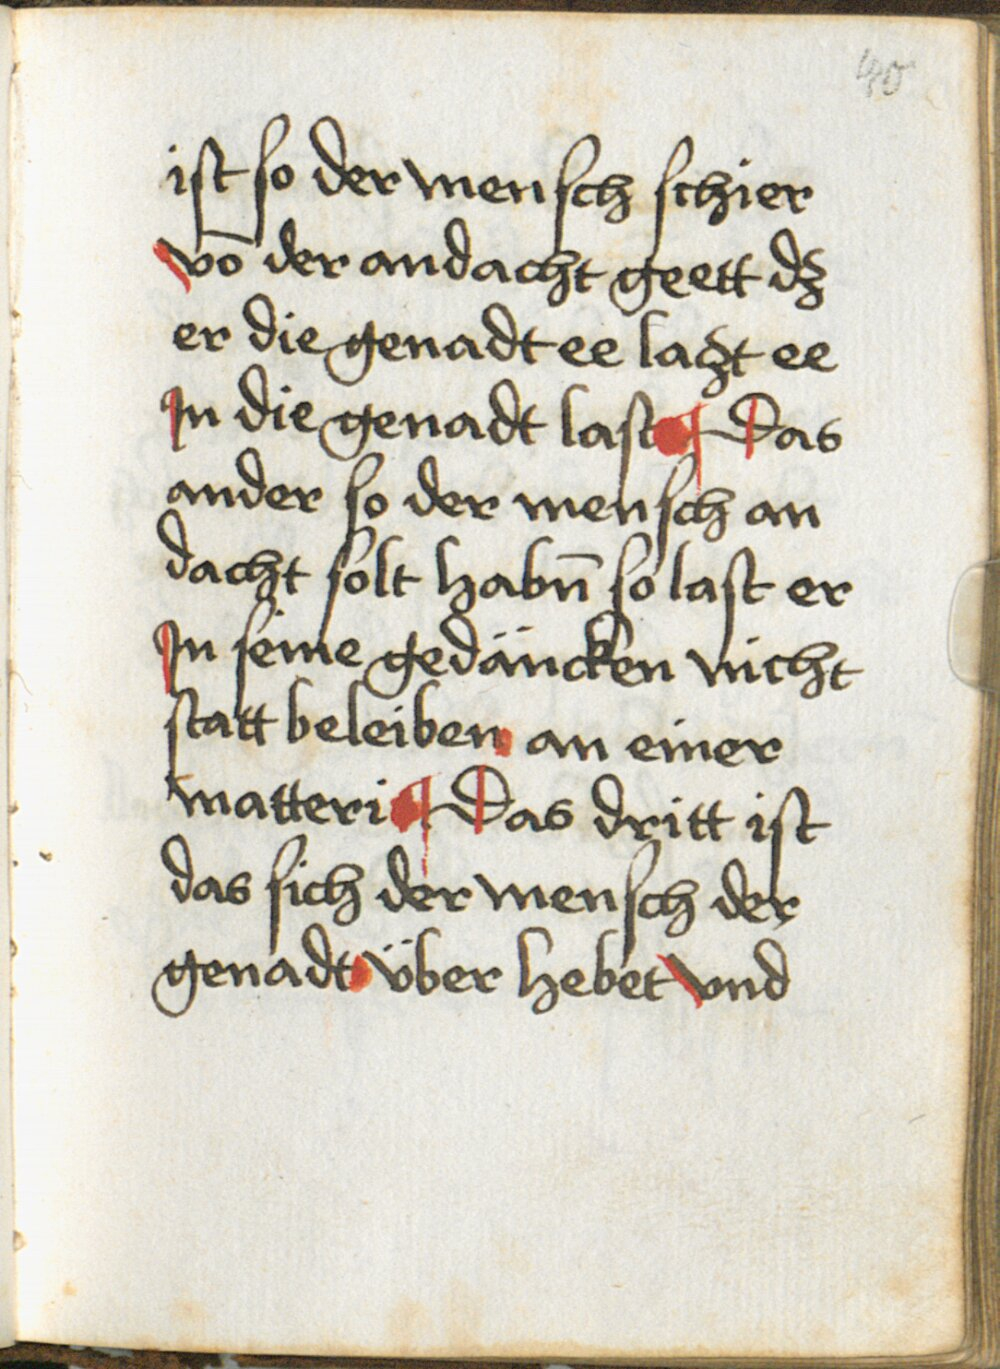 40
ist so der mensch schier
vō der andacht geett dz
er die genadt ee lazt ee
Jn die genadt last ¶ Das
ander so der mensch an
dacht solt habn̄ so last er
Jn seine gedäncken nicht
statt beleiben an einer
matteri ¶ Das dritt ist
das sich der mensch der
genadt über hebet vnd